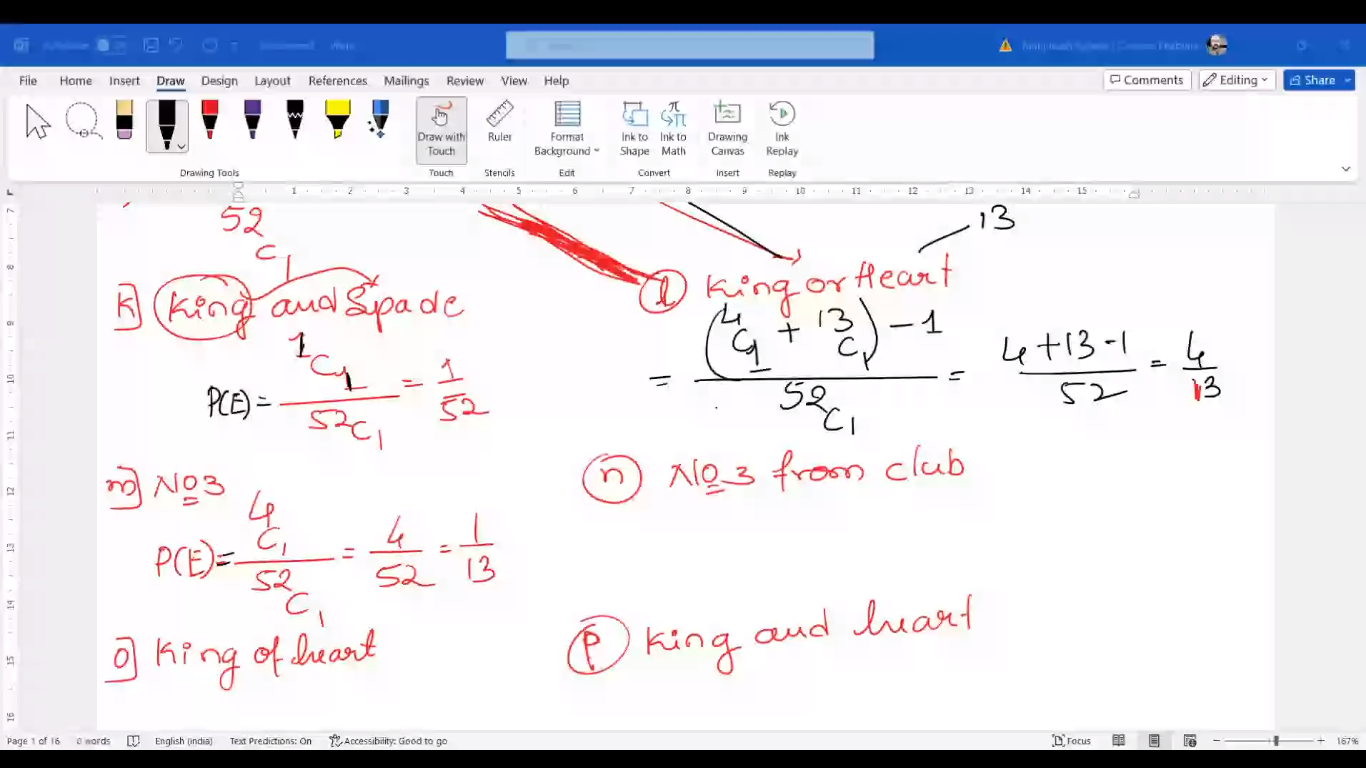 File Home Insert Draw Design Layout References Mailings Review View Help Comments Editing Share
Draw with Touch Ruler Format Background Ink to Shape Ink to Math Drawing Canvas Ink Replay
Drawing Tools Touch Stencils Edit Convert Insert Replay
1 2 3 4 5 6 7 8 9 10 11 12 13 14 15
52
C1
k] King and Spade
P(E) = 1C1 / 52C1 = 1/52
13
l King or Heart
= (4C1 + 13C1) - 1 / 52C1 = 4+13-1 / 52 = 4/13
m] No 3
P(E) = 4C1 / 52C1 = 4/52 = 1/13
n No 3 from club
o] King of heart
p King and heart
7
8
9
10
11
12
13
14
15
16
Page 1 of 16 0 words English (India) Text Predictions: On Accessibility: Good to go Focus 167%